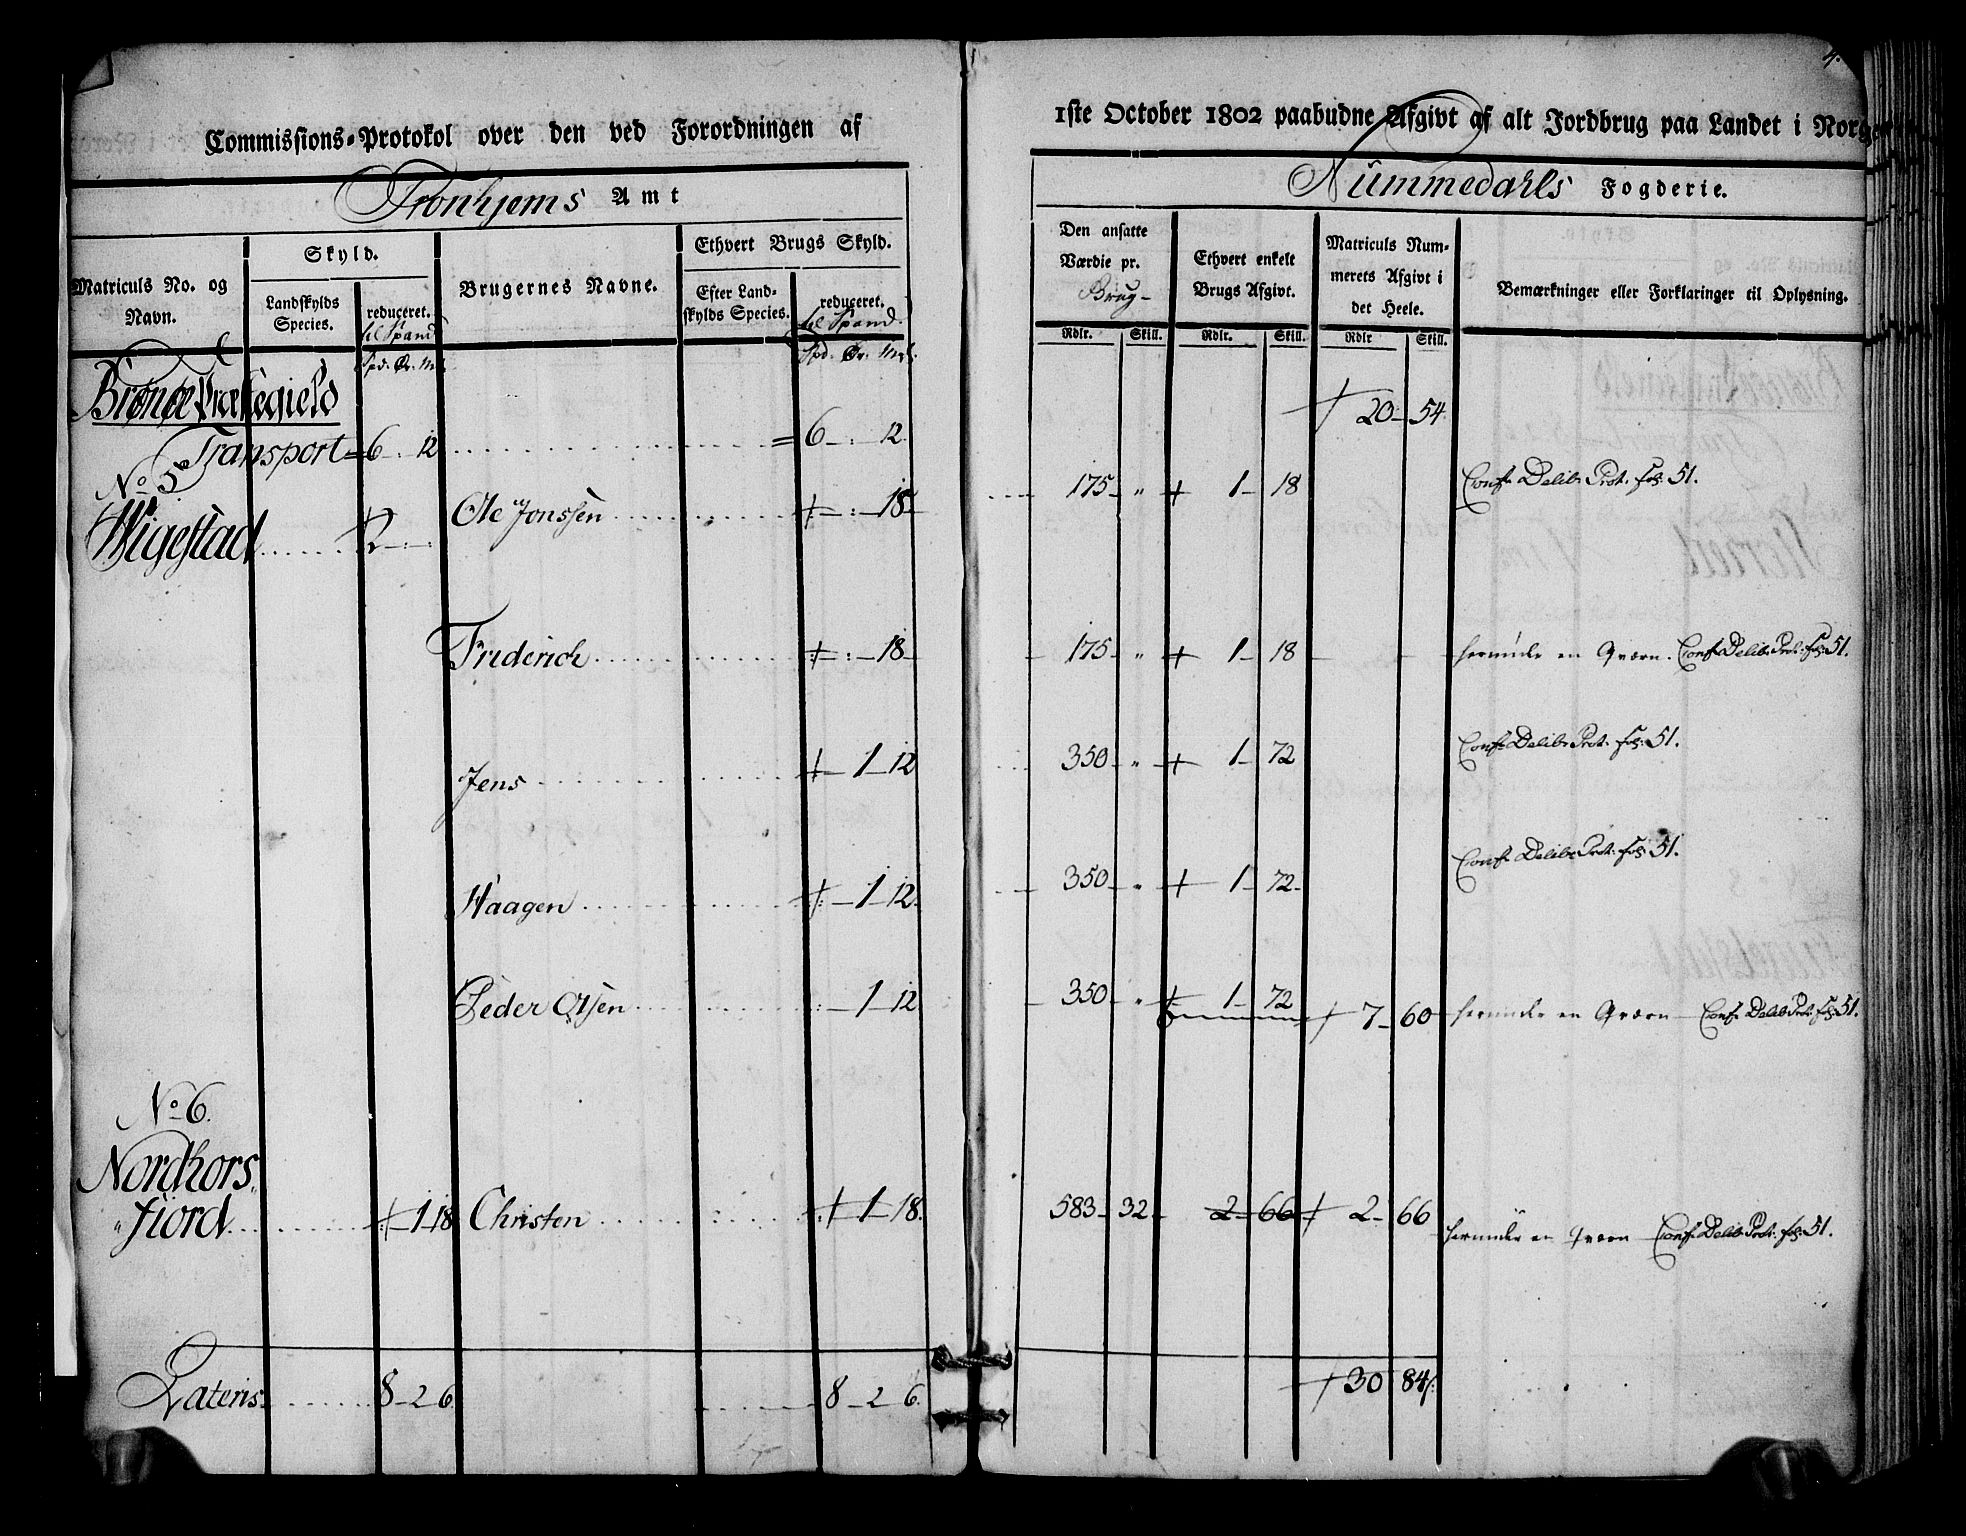 4.
Commissions-Protokol over den ved Forordningen af 1ste October 1802 paabudne Afgivt af alt Jordbrug paa Landet i Norge
Tronhjems Amt
Nummedahls Fogderie.
Matriculs No. og Navn.
Skyld.
Landskylds Species.
reduceret. til Spand
Spd. Ør. Mk.
Brugernes Navne.
Ethvert Brugs Skyld.
Efter Landskylds Species.
reduceret. til Spand.
Spd. Ør. Mk.
Den ansatte Værdie pr. Brug-
Rdlr. Skill.
Ethvert enkelt Brugs Afgivt.
Rdlr. Skill.
Matriculs Nummerets Afgivt i det Heele.
Rdlr Skill.
Bemærkninger eller Forklaringer til Oplysning.
Præstegield
Transport = 6 - : 12 = 6 - : - 12. 20 - 54.
No 5
Wigestad 2 - : - Ole Jonssen - : - 18 - 175 - „ 1 - 18 Conf. Delib. Prot. fol. 51.
Friderich - : - 18 - 175 - „ 1 - 18 herunder en Qværn. Conf. Delib. Prot. fol. 51.
Jens - 1 - 12 350 - „ 1 - 72 Conf. Delib. Prot. fol. 51.
Haagen - 1 - 12. 350 - „ 1 - 72. Conf. Delib. Prot. fol. 51.
Peder Olsen : - 1 - 12 350 - „ 1 - 72 7 - 60 herunder en Qværn Conf. Delib. Prot. fol. 51.
No 6.
Nordhors-
„fiord - 1 - 18 Christen 1 - 18. 583 - 32 - 2 - 66 2 - 66 herunder en Qværn Conf. Delib. Prot. fol. 51.
Lateris 8 - 2 6. 8 - 2 6. 30 84